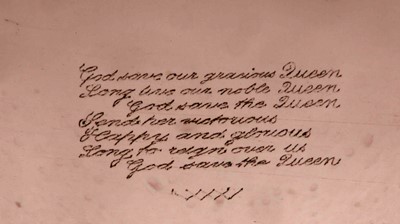 God save our gracious Queen
Long live our noble Queen
God save the Queen
Send her victorious
Happy and glorious
Long to reign over us
God save the Queen